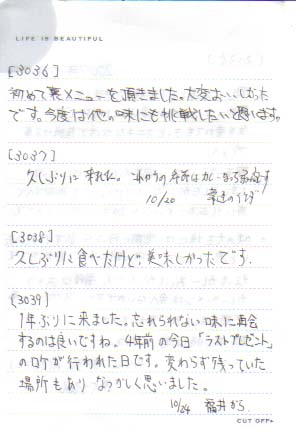 LIFE IS BEAUTIFUL
[3036]
初めて裏メニューを頂きました。大変おいしかった
です。今度は他の味にも挑戦したいと思います。
[3037]
久しぶりに来れた。
10/20
[3038]
久しぶりに食べたけど美味しかったです.
[3039]
1年ぶりに来ました。忘れられない味に再会
するのは良いですね。4年前の今日「ラストプレゼント」
のロケが行われた日です。変わらず残っていた
場所もあり なつかしく思いました。
10/24 福井から.
CUT OFF▸